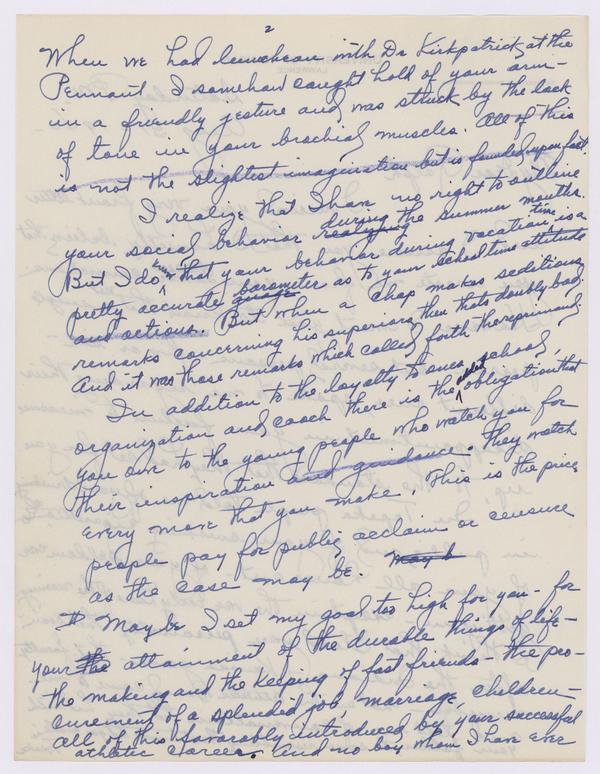 2
When we had luncheon with Dr Kirkpatrick at the
Pennant I somehow caught hold of your arm—
in a friendly jesture and was struck by the lack
of tone in your brachial muscles. All of this
is not the slightest imagination but is founded upon fact.
I realize that I have no right to outline
your social behavior during the summer months.
But I do know that your behavior during vacation time is a
pretty accurate barometer as to your school time attitude
and actions. But when a chap makes seditious
remarks concerning his superiors then thats doubly bad.
And it was those remarks which called forth the reprimand
In addition to the loyalty to ones school,
organization and coach there is the added obligation that
you owe to the young people who watch you for
their inspiration and guidance. They watch
every move that you make. This is the price
people pay for public acclaim or censure
as the case may be. May b
Maybe I set my goal too high for you - for
your attainment of the durable things of life—
the making and the keeping of fast friends - the pro-
curement of a splendid job, marriage, children—
all of this favorably introduced by your successful
athletic career. And no boy whom I have ever